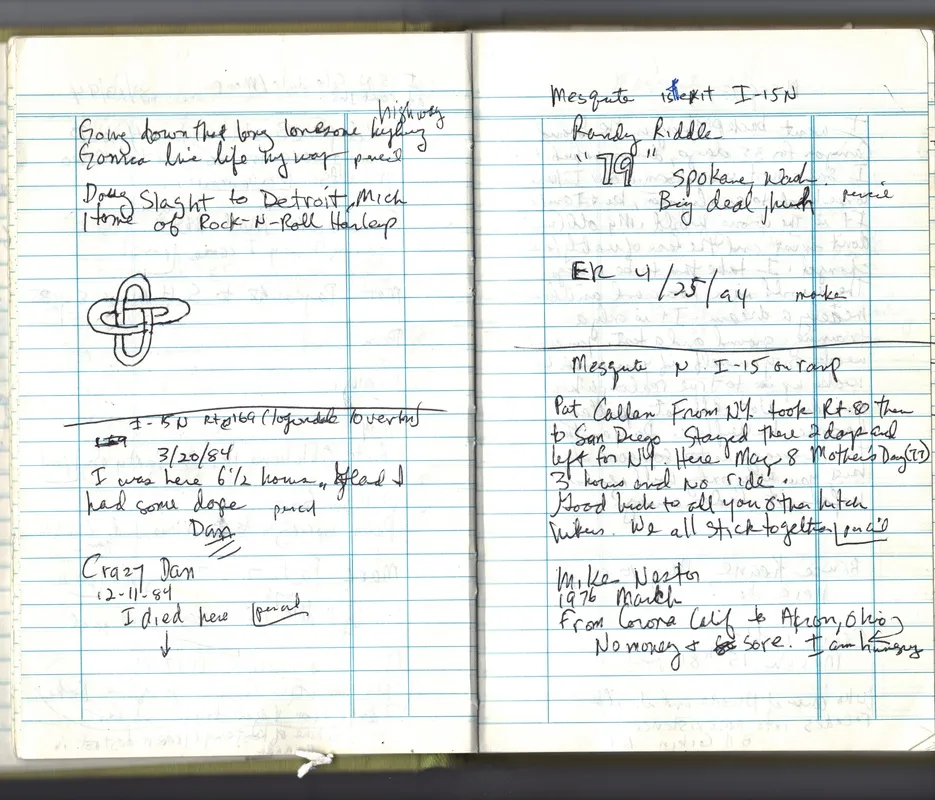 highway
Going down that long lonesome
Gonna live life my way pencil
Doug Slaght to Detroit, Mich
Home of Rock-N-Roll Harley
I-15N Rt 169 (Logandale Overton)
3/20/84
I was here 6 1/2 hours, glad I
had some dope pencil
Dan
Crazy Dan
12-11-84
I died here pencil
Mesquite 1st exit I-15N
Randy Riddle
"79"
Spokane, Wash.
Big deal, huh pencil
ER 4/25/94 marker
Mesquite N I-15 on ramp
Pat Callan From NY. took Rt. 80 then
to San Diego Stayed there 2 days and
left for NY. Here May 8 Mother's Day (77)
3 hours and no ride.
Good luck to all you other hitch
hikers. We all stick together pencil
Mike Nestor
1976 March
From Corona Calif to Akron, Ohio
No money + sore. I am hungry